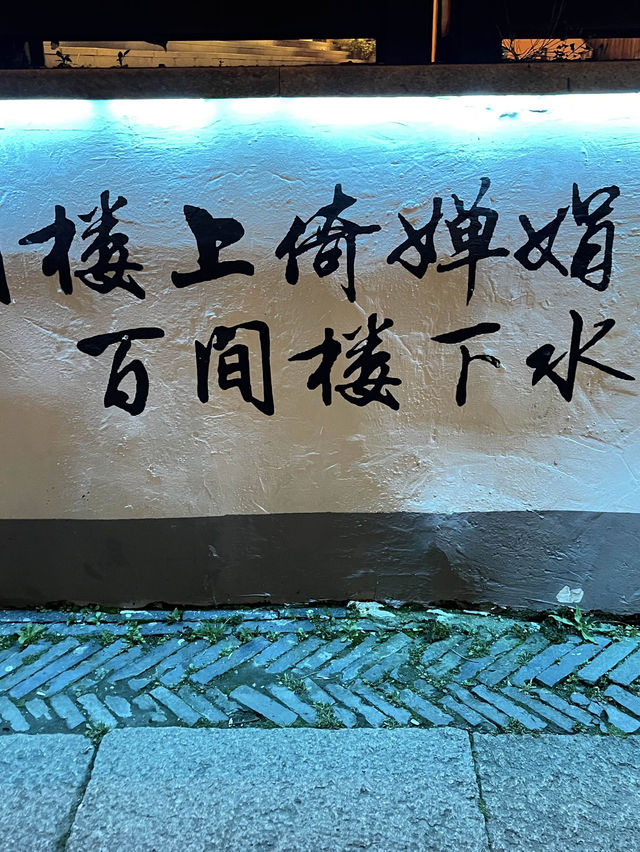 楼上倚婵娟
百间楼下水